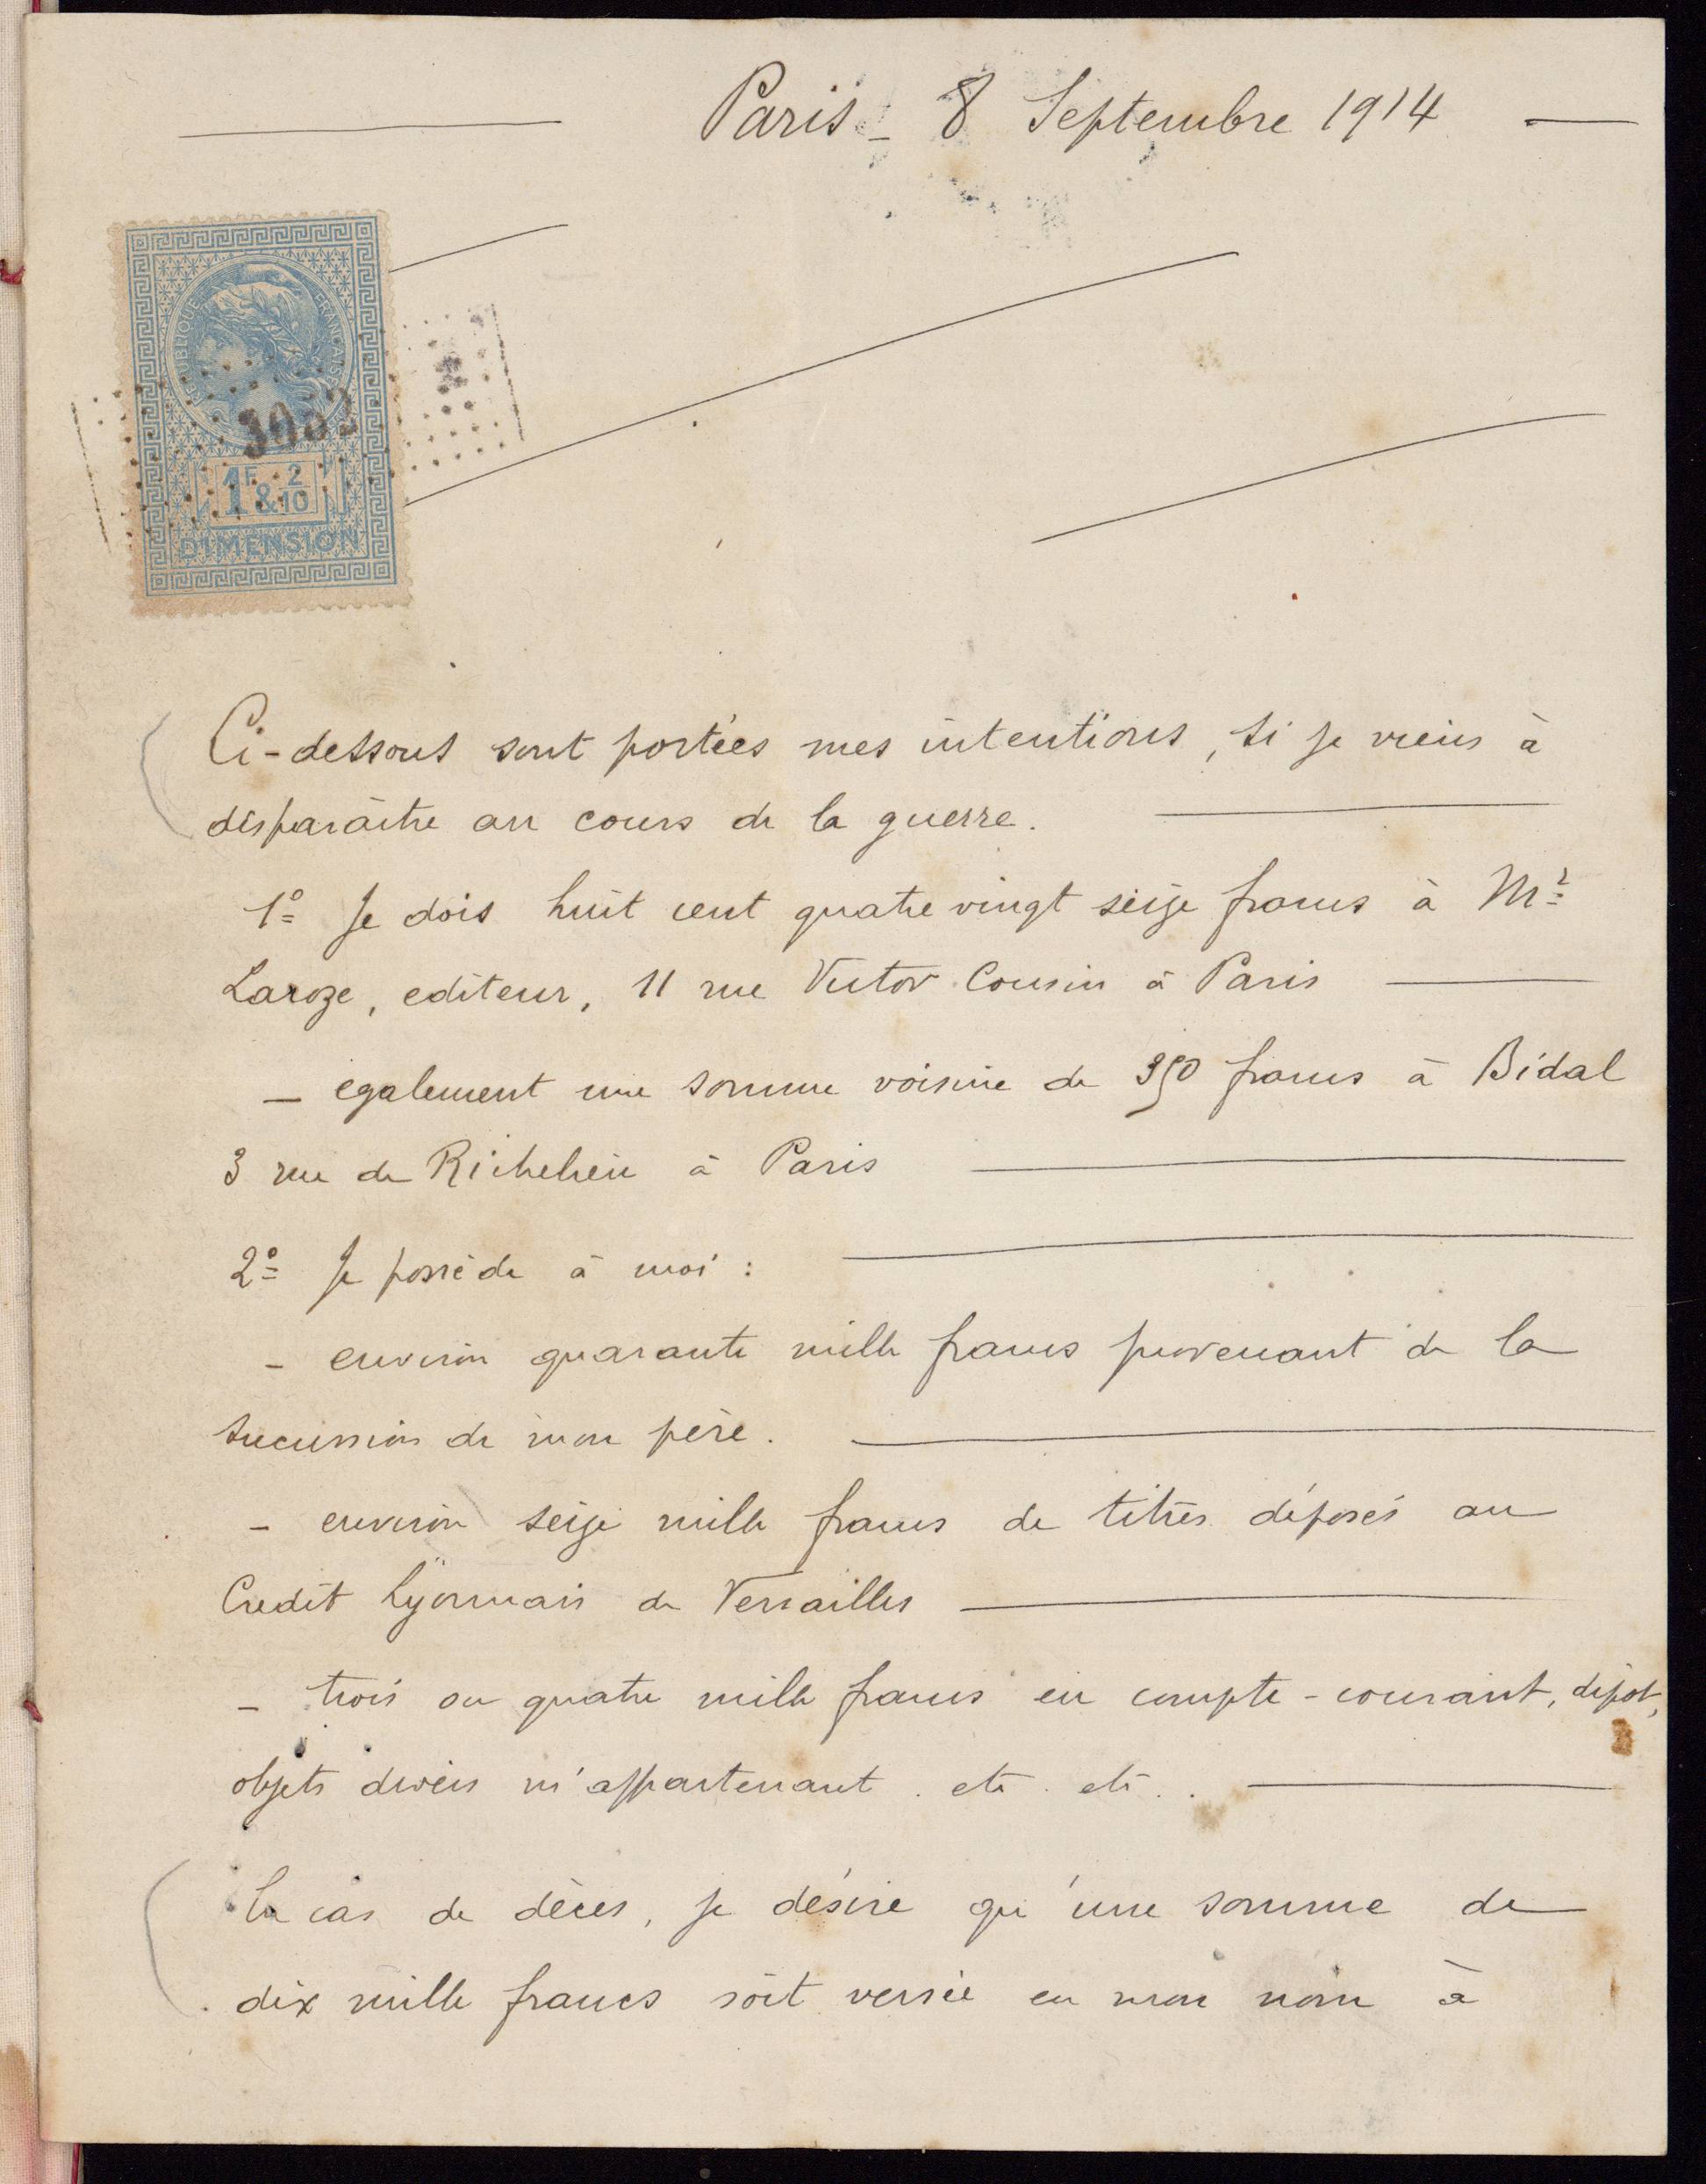 Paris - 8 Septembre 1914
REPUBLIQUE FRANCAISE
3952
1F & 2/10
DIMENSION
Ci-dessous sont portées mes intentions, si je viens à
disparaître au cours de la guerre.
1º Je dois huit cent quatre vingt seize francs à Mr
Laroze, editeur, 11 rue Victor Cousin à Paris
- egalement une somme voisine de 350 francs à Bidal
3 rue de Richelieu à Paris
2º Je possède à moi :
- environ quarante mille francs provenant de la
succession de mon père.
- environ seize mille francs de titres déposés au
Credit Lyonnais de Versailles
- trois ou quatre mille francs en compte-courant, dépot,
objets divers m'appartenant. etc. etc..
En cas de décès, je désire qu'une somme de
dix mille francs soit versée en mon nom à